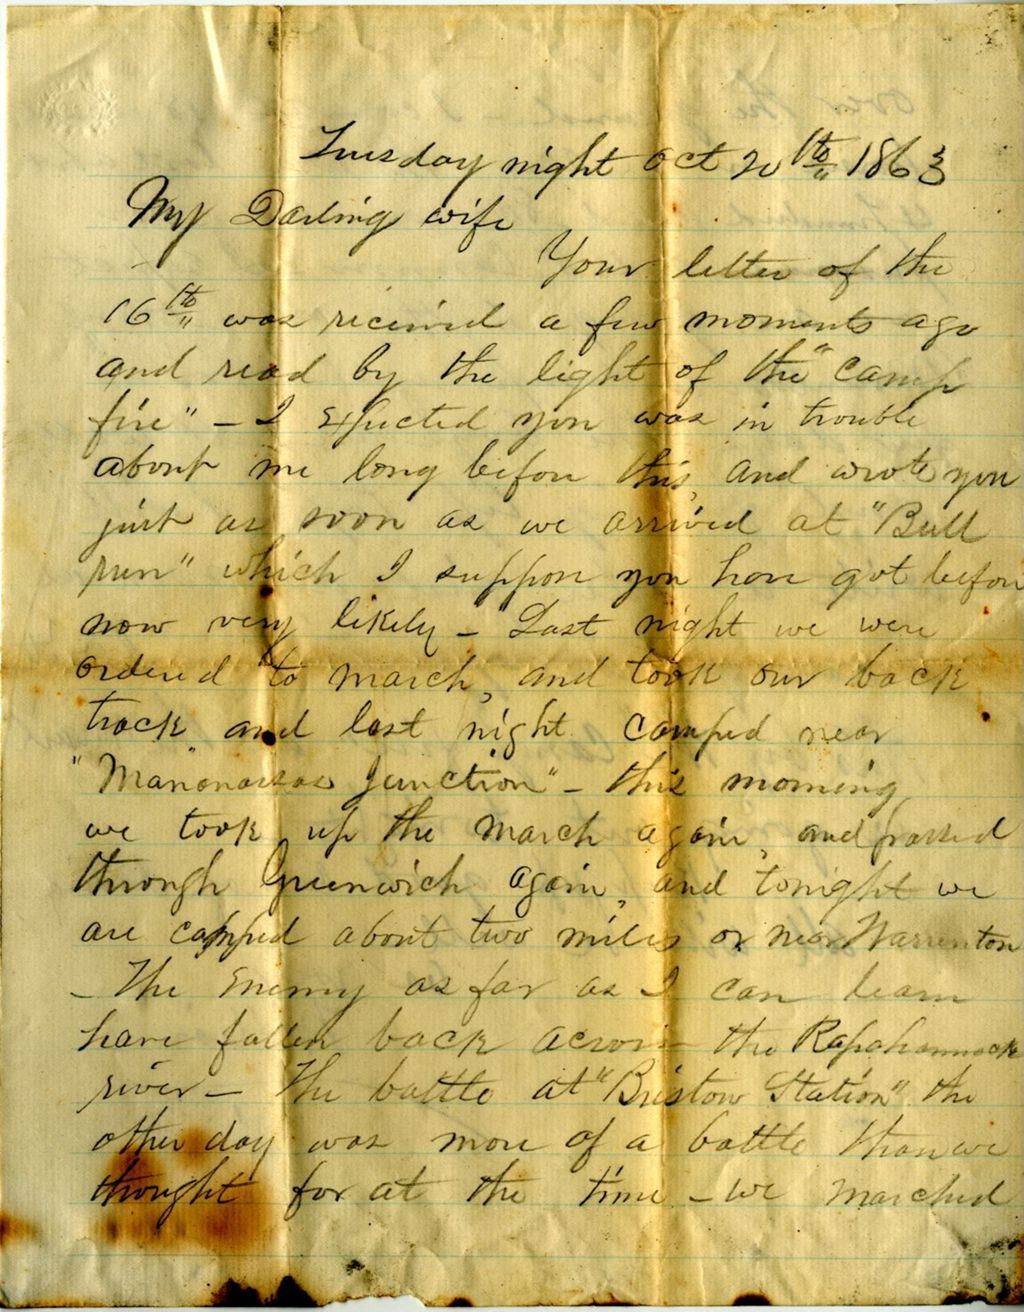 Tuesday night Oct 20th 1863
My Darling wife
Your letter of the
16th was recieved a few moments ago
and read by the light of the "camp
fire" – I expected you was in trouble
about me long before this, and wrote you
just as soon as we arrived at "Bull
run" which I suppose you have got before
now very likely – Last night we were
ordered to march, and took our back
track and last night camped near
"Mananassas Junction" – this morning
we took up the march again, and passed
through Greenwich again, and tonight we
are camped about two miles or near Warrenton
– The Enemy as far as I can learn
have fallen back across the Rapahannock
river – The battle at "Bristow Station" the
other day was more of a battle than we
thought for at the time – we marched